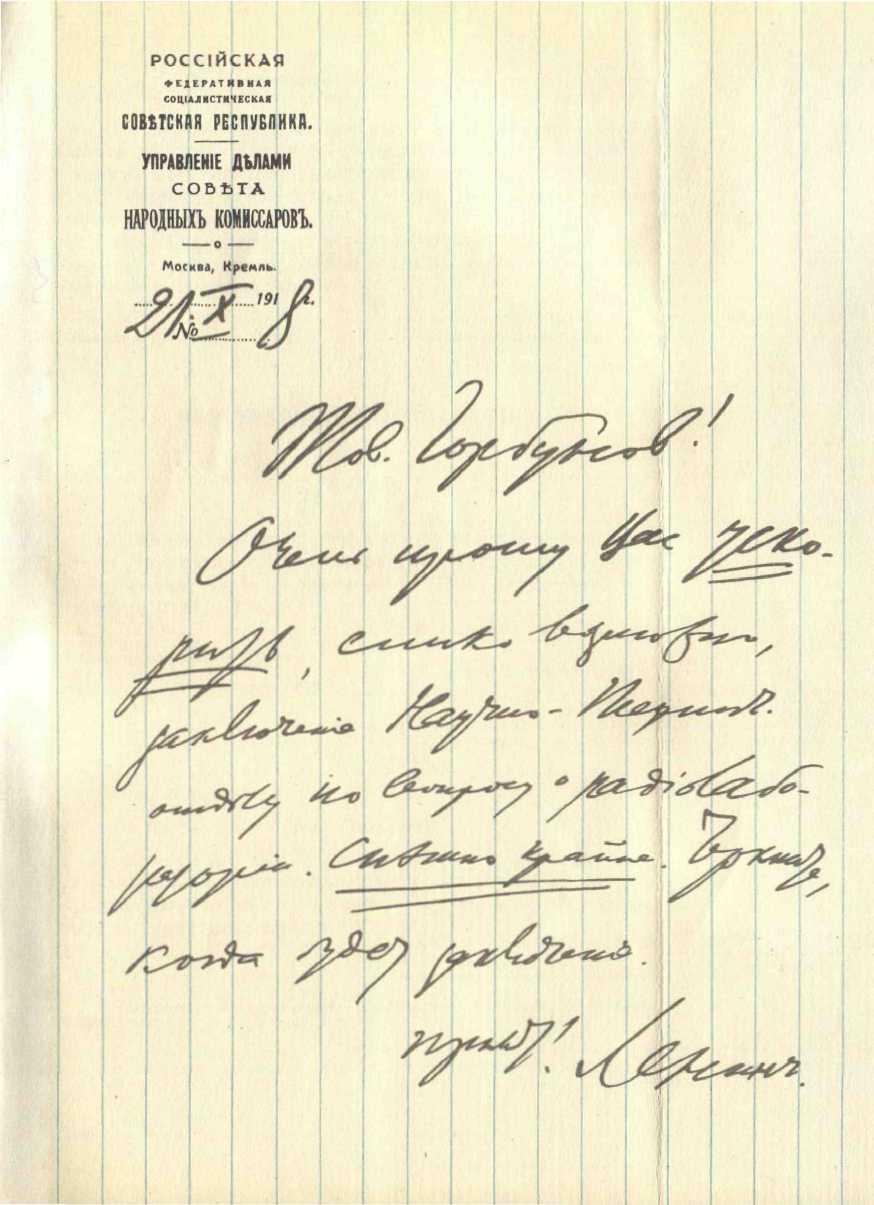 РОССІЙСКАЯ
ФЕДЕРАТИВНАЯ
СОЦІАЛИСТИЧЕСКАЯ
СОВѢТСКАЯ РЕСПУБЛИКА.
УПРАВЛЕНІЕ ДѢЛАМИ
СОВѢТА
НАРОДНЫХЪ КОМИССАРОВЪ.
Москва, Кремль.
21 X 1918 г.
№
Тов. Горбунов!
Очень прошу Вас уско-
рить, елико возможно,
заключение Научно-Технич.
отделу по вопросу о радіолабо-
раторіи. Спѣшно крайне. Черкните,
когда будет заключение.
Привет! Ленинъ.